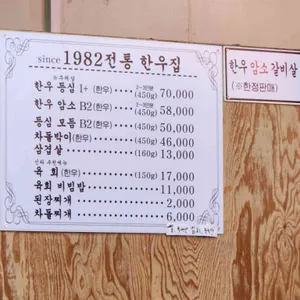 since 1982전통 한우집
한우 등심 1+ (한우) 2~3인분 (450g) 70,000
한우 암소 B2 (한우) 2~3인분 (450g) 58,000
등심 모듬 B2 (한우) (450g) 50,000
차돌박이 (한우) (450g) 46,000
삼겹살 (160g) 13,000
육 회 (한우) (150g) 17,000
육회 비빔밥 11,000
된장찌개 2,000
차돌찌개 6,000
한우 암소 갈비살
(※한정판매)